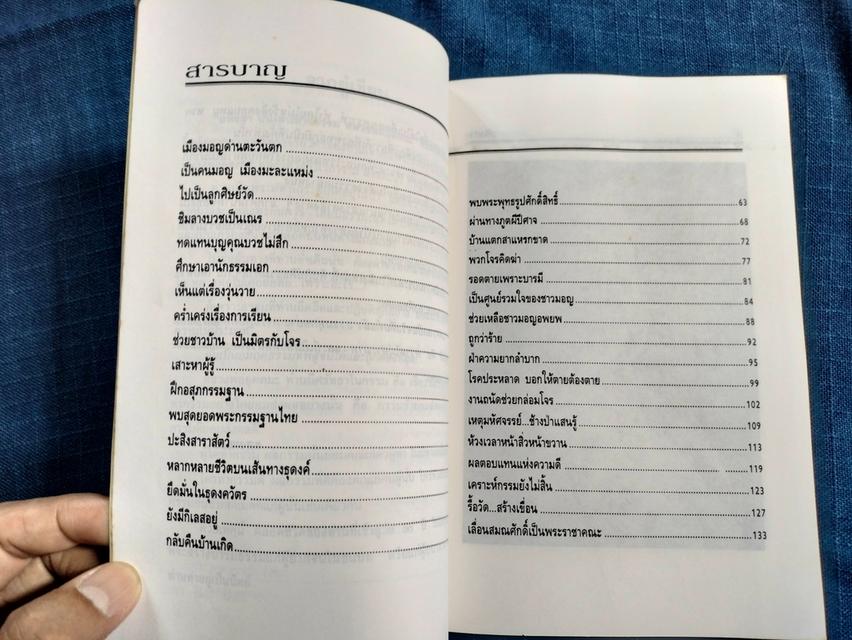 สารบาญ
เมืองมอญด่านตะวันตก
เป็นคนมอญ เมืองมะละแหม่ง
ไปเป็นลูกศิษย์วัด
ชิมลางบวชเป็นเณร
ทดแทนบุญคุณบวชไม่สึก
ศึกษาเอานักธรรมเอก
เห็นแต่เรื่องวุ่นวาย
คร่ำเคร่งเรื่องการเรียน
ช่วยชาวบ้าน เป็นมิตรกับโจร
เสาะหาผู้รู้
ฝึกอสุภกรรมฐาน
พบสุดยอดพระกรรมฐานไทย
ปะสิงสาราสัตว์
หลากหลายชีวิตบนเส้นทางธุดงค์
ยึดมั่นในธุดงควัตร
ยังมีกิเลสอยู่
กลับคืนบ้านเกิด
พบพระพุทธรูปศักดิ์สิทธิ์ 63
ผ่านทางภูตผีปีศาจ 68
บ้านแตกสาแหรกขาด 72
พวกโจรคิดฆ่า 77
รอดตายเพราะบารมี 81
เป็นศูนย์รวมใจของชาวมอญ 84
ช่วยเหลือชาวมอญอพยพ 88
ถูกว่าร้าย 92
ฝ่าความยากลำบาก 95
โรคประหลาด บอกให้ตายต้องตาย 99
งานถนัดช่วยกล่อมโจร 102
เหตุมหัศจรรย์...ช้างป่าแสนรู้ 109
ห้วงเวลาหน้าสิ่วหน้าขวาน 113
ผลตอบแทนแห่งความดี 119
เคราะห์กรรมยังไม่สิ้น 123
รื้อวัด...สร้างเขื่อน 127
เลื่อนสมณศักดิ์เป็นพระราชาคณะ 133